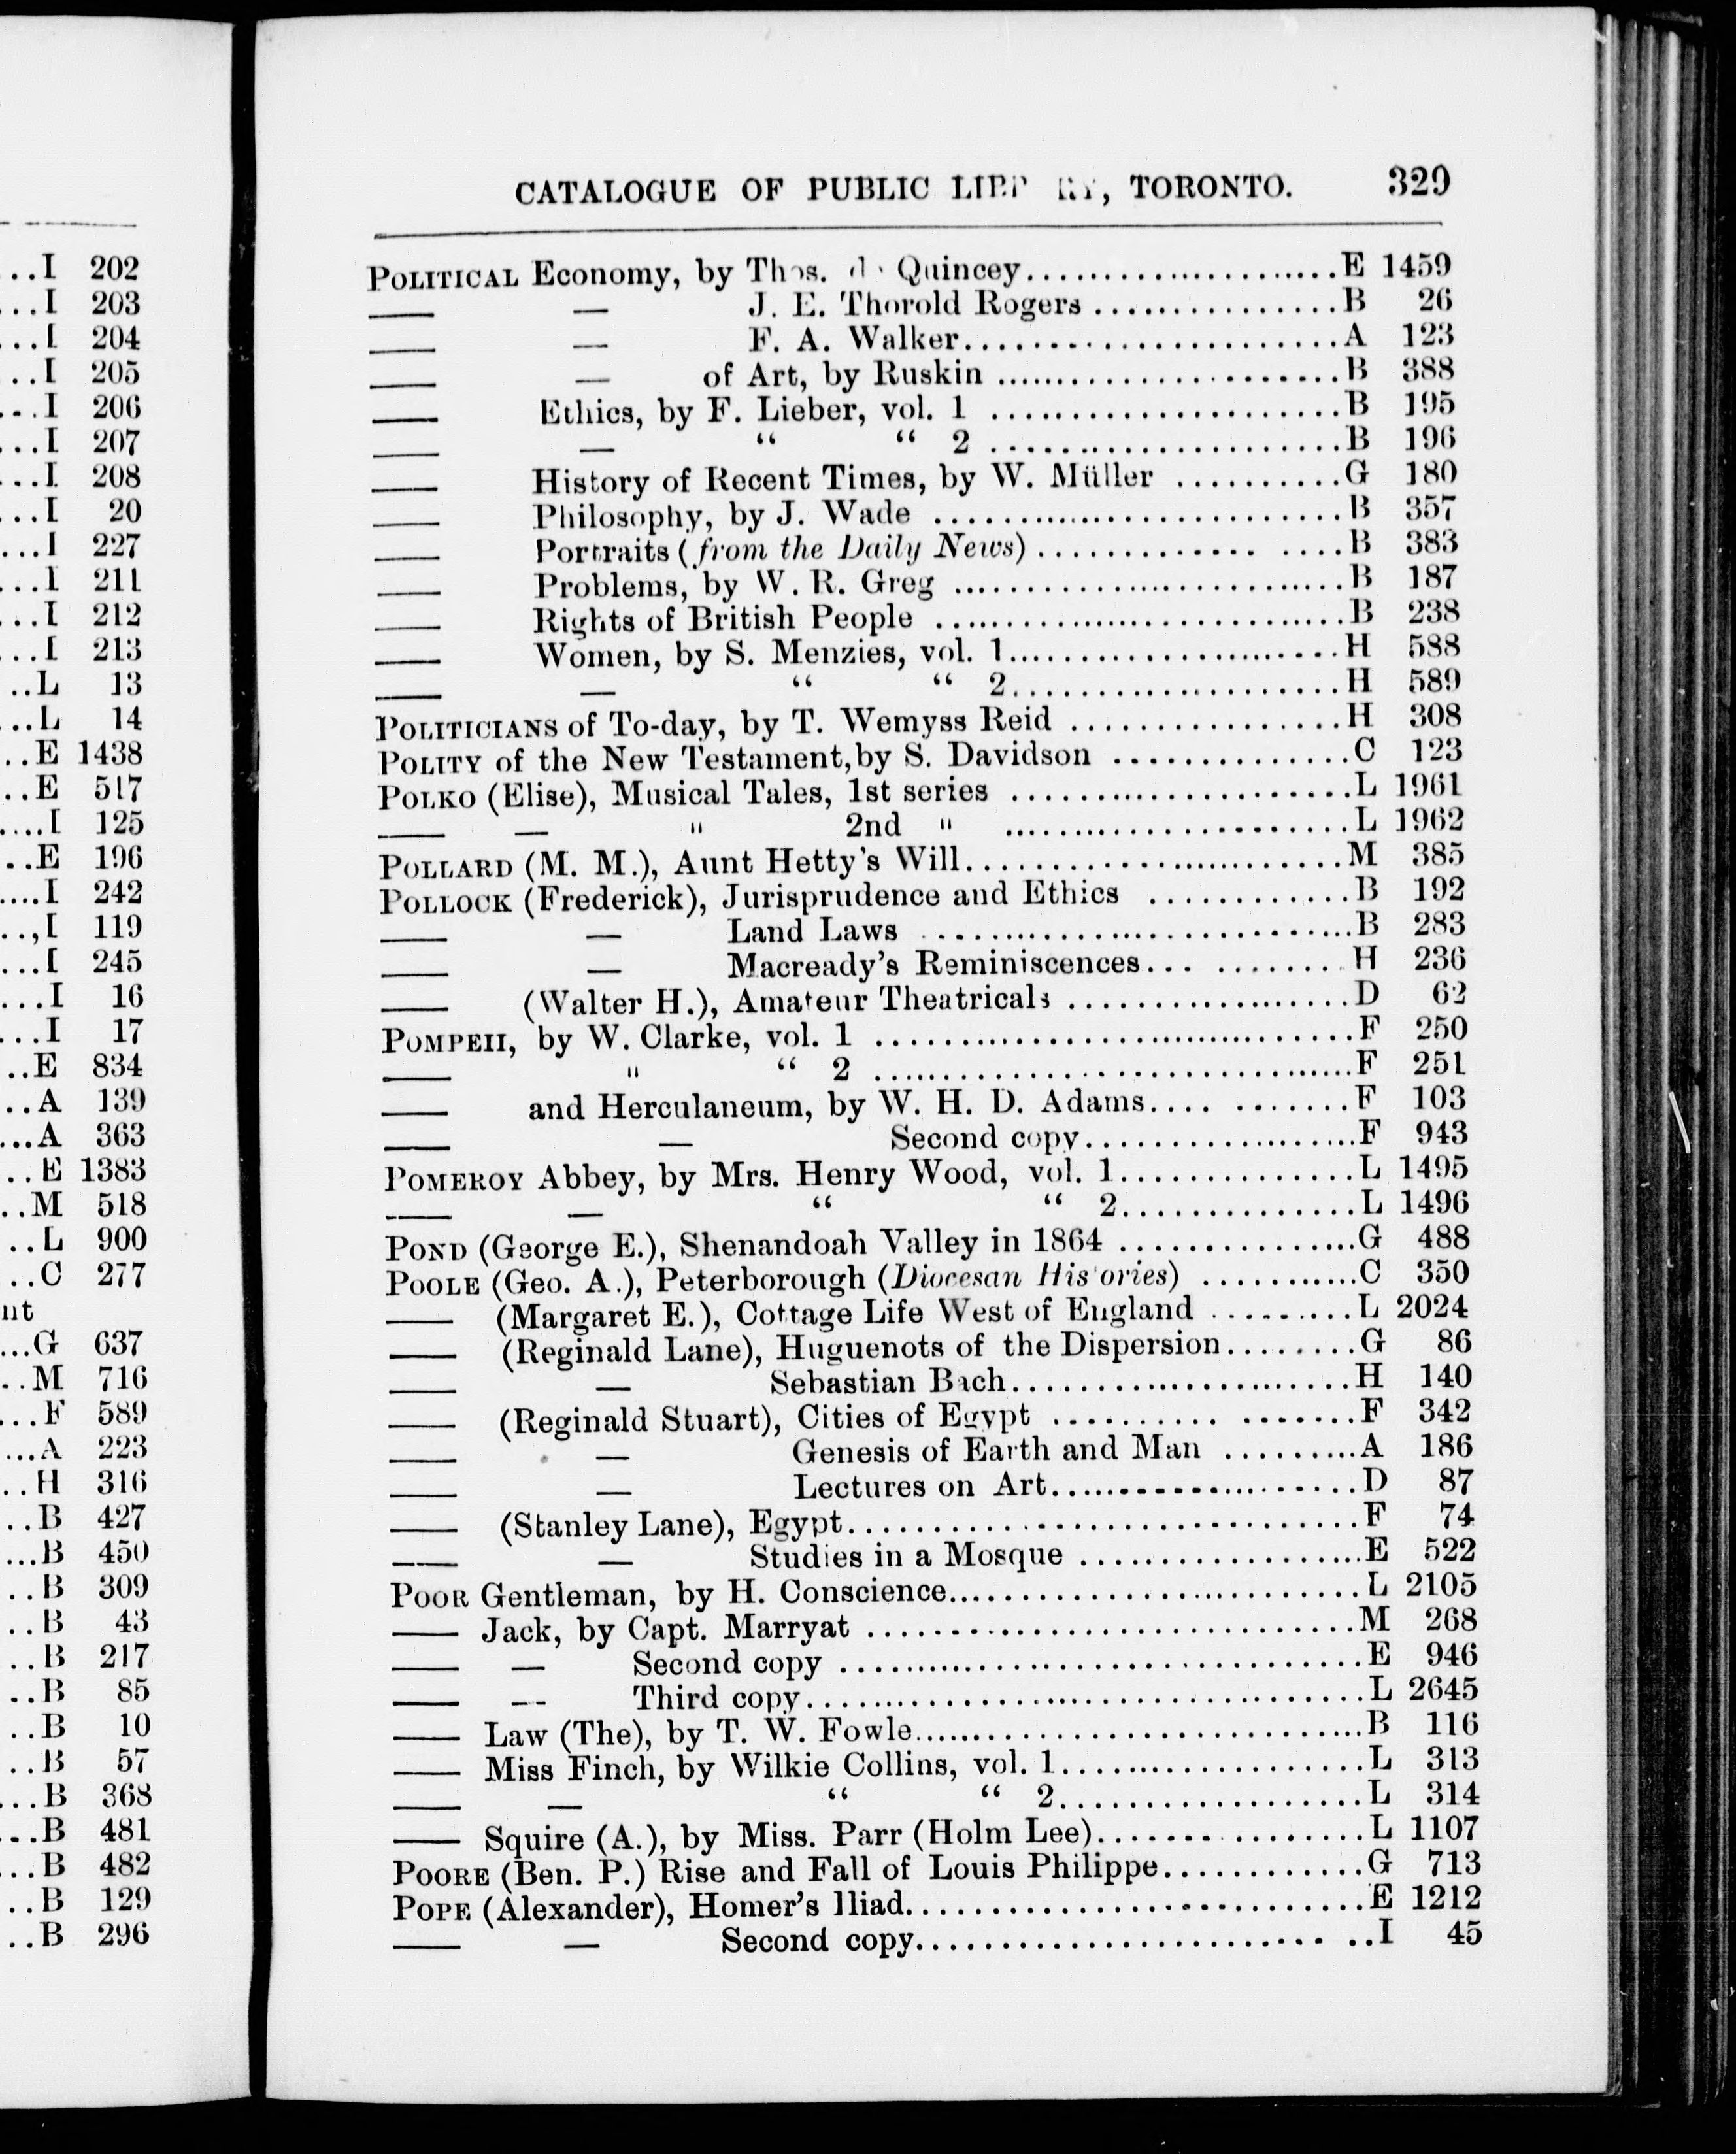 ...I 202
...I 203
...I 204
...I 205
...I 206
...I 207
...I 208
...I 20
...I 227
...I 211
...I 212
...I 213
..L 13
...L 14
..E 1438
..E 517
....I 125
..E 196
....I 242
..,I 119
...I 245
...I 16
...I 17
..E 834
..A 139
...A 363
..E 1383
..M 518
..L 900
..C 277
nt
...G 637
..M 716
...F 589
...A 223
..H 316
..B 427
...B 450
..B 309
..B 43
..B 217
..B 85
..B 10
..B 57
...B 368
...B 481
...B 482
..B 129
..B 296
CATALOGUE OF PUBLIC , TORONTO. 329
POLITICAL Economy, by Thos. Quincey......................E 1459
—— — J. E. Thorold Rogers ................B 26
—— — F. A. Walker.........................A 123
—— — of Art, by Ruskin ........................B 388
—— Ethics, by F. Lieber, vol. 1 .......................B 195
—— — “ “ 2 .......................B 196
—— History of Recent Times, by W. Müller ..........G 180
—— Philosophy, by J. Wade ............................B 357
—— Portraits (from the Daily News)............. ....B 383
—— Problems, by W. R. Greg ...........................B 187
—— Rights of British People ............................B 238
—— Women, by S. Menzies, vol. 1......................H 588
—— — “ “ 2......................H 589
POLITICIANS of To-day, by T. Wemyss Reid .................H 308
POLITY of the New Testament,by S. Davidson ...............C 123
POLKO (Elise), Musical Tales, 1st series .......................L 1961
—— — " 2nd " .......................L 1962
POLLARD (M. M.), Aunt Hetty's Will.........................M 385
POLLOCK (Frederick), Jurisprudence and Ethics .............B 192
—— — Land Laws ............................B 283
—— — Macready's Reminiscences... .........H 236
—— (Walter H.), Amateur Theatricals ...................D 62
POMPEII, by W. Clarke, vol. 1 ................................F 250
—— " “ 2 ................................F 251
—— and Herculaneum, by W. H. D. Adams.... ........F 103
—— — Second copy...................F 943
POMEROY Abbey, by Mrs. Henry Wood, vol. 1...............L 1495
—— — “ “ 2...............L 1496
POND (George E.), Shenandoah Valley in 1864 ................G 488
POOLE (Geo. A.), Peterborough (Diocesan His ories) ...........C 350
—— (Margaret E.), Cottage Life West of England ..........L 2024
—— (Reginald Lane), Huguenots of the Dispersion.........G 86
—— — Sebastian Bach.......................H 140
—— (Reginald Stuart), Cities of Egypt .......... ........F 342
—— — Genesis of Earth and Man ..........A 186
—— — Lectures on Art......................D 87
—— (Stanley Lane), Egypt..................................F 74
—— — Studies in a Mosque ...................E 522
POOR Gentleman, by H. Conscience............................L 2105
—— Jack, by Capt. Marryat .................................M 268
—— — Second copy ....................................E 946
—— — Third copy......................................L 2645
—— Law (The), by T. W. Fowle..............................B 116
—— Miss Finch, by Wilkie Collins, vol. 1.....................L 313
—— — “ “ 2.....................L 314
—— Squire (A.), by Miss. Parr (Holm Lee)..................L 1107
POORE (Ben. P.) Rise and Fall of Louis Philippe.............G 713
POPE (Alexander), Homer's Iliad...............................E 1212
—— — Second copy........................ ..I 45